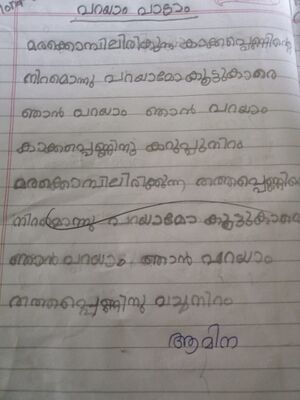 പറയാം പാടാം
മരക്കൊമ്പിലിരിക്കുന്ന കാക്കപ്പെണ്ണിന്റെ
നിറമൊന്നു പറയാമോ കൂട്ടുകാരെ
ഞാൻ പറയാം ഞാൻ പറയാം
കാക്കപ്പെണ്ണിനു കറുപ്പുനിറം
മരക്കൊമ്പിലിരിക്കുന്ന തത്തപ്പെണ്ണിന്റെ
നിറമൊന്നു പറയാമോ കൂട്ടുകാരെ
ഞാൻ പറയാം ഞാൻ പറയാം
തത്തപ്പെണ്ണിനു പച്ചനിറം
ആമിന